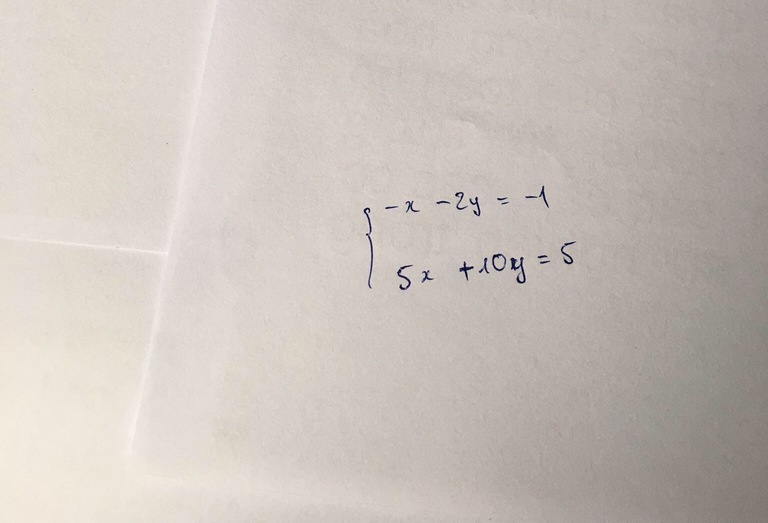 -x -2y = -1
5x +10y = 5